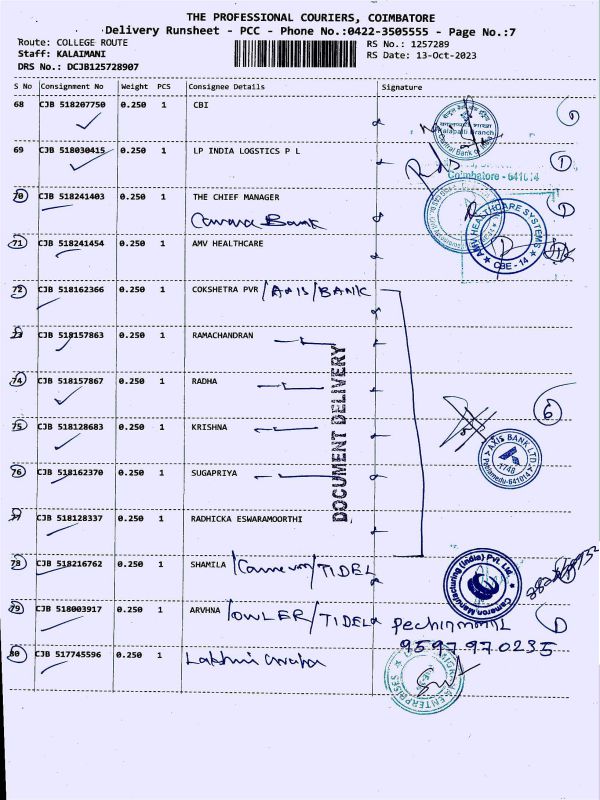 THE PROFESSIONAL COURIERS, COIMBATORE
Delivery Runsheet - PCC - Phone No.:0422-3505555 - Page No.:7
Route: COLLEGE ROUTE
RS No.: 1257289
Staff: KALAIMANI
RS Date: 13-Oct-2023
DRS No.: DCJB125728907
S No Consignment No Weight PCS Consignee Details Signature
68 CJB 518207750 0.250 1 CBI
Kalapatti Branch
Central Bank of India
69 CJB 518030415 0.250 1 LP INDIA LOGSTICS P L
Coimbatore - 641014
70 CJB 518241403 0.250 1 THE CHIEF MANAGER
Canara Bank
71 CJB 518241454 0.250 1 AMV HEALTHCARE
AMV HEALTHCARE SYSTEMS
CBE - 14
72 CJB 518162366 0.250 1 COKSHETRA PVR /AXIS/BANK
73 CJB 518157863 0.250 1 RAMACHANDRAN
DOCUMENT DELIVERY
74 CJB 518157867 0.250 1 RADHA
6
75 CJB 518128683 0.250 1 KRISHNA
AXIS BANK LTD.
1748
Peelamedu-641014
76 CJB 518162370 0.250 1 SUGAPRIYA
77 CJB 518128337 0.250 1 RADHICKA ESWARAMOORTHI
78 CJB 518216762 0.250 1 SHAMILA /Cameron/TIDEL
Cameron Manufacturing (India) Pvt. Ltd.
79 CJB 518003917 0.250 1 ARVHNA /OWLER/TIDEL
Pechimmal
9597970235
80 CJB 517745596 0.250 1 Lakshmi
ENTERPRISES